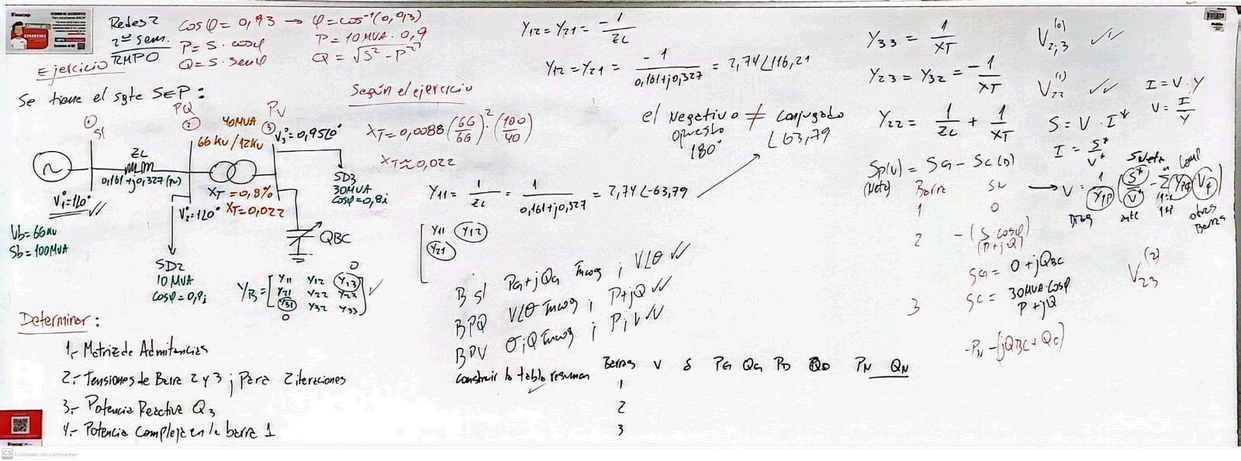 Redes 2
2do Sem.
RMPO
Ejercicio
cosφ = 0,93 → φ = cos⁻¹(0,93)
P = S · cosφ
P = 10MVA · 0,9
Q = S · senφ
Q = √S² - P²
Se tiene el sgte SEP:
① S1
PQ ②
40MVA
66KV/12KV
PV ③
V₃° = 0,95∠0°
ZL
0,161+j0,327(pu)
XT = 0,8%
XT = 0,022
V₁° = 1∠0°
V₂° = 1∠0°
SD3
30MVA
cosφ = 0,8i
QBC
Vb = 66KV
Sb = 100MVA
SD2
10 MVA
cosφ = 0,9i
YB = [Y11 Y12 Y13
Y21 Y22 Y23
Y31 Y32 Y33]
0
0
Determinar:
1.- Matriz de Admitancias
2.- Tensiones de Barra 2 y 3 j para 2 iteraciones
3.- Potencia Reactiva Q3
4.- Potencia Compleja en la barra 1
Según el ejercicio
XT = 0,0088 (66/66)² · (100/40)
XT ≈ 0,022
Y12 = Y21 = -1/ZL
Y12 = Y21 = -1/(0,161+j0,327) = 2,74∠116,21
el Negativo ≠ conjugado
opuesto
180°
∠63,79
Y11 = 1/ZL = 1/(0,161+j0,327) = 2,74∠-63,79
Y11 Y12
Y21
B S1 PG+jQG Incog ; V∠θ ✓✓
BPQ V∠θ Incog ; P+jQ ✓✓
BPV θ;Q Incog ; P;V ✓✓
construir la tabla resumen
Barras V δ PG QG PD QD PN QN
1
2
3
Y33 = 1/XT
Y23 = Y32 = -1/XT
Y22 = 1/ZL + 1/XT
V2,3⁽⁰⁾ ✓✓
V22⁽¹⁾ ✓✓
I = V · Y
V = I/Y
S = V · I*
I = S*/V*
Sp(v) = SG - SC(D)
(Neto)
Barra SN
1 0
2 -(S cosφ)
(P+jQ)
3
SG = 0+jQBC
SC = 30MVA·cosφ
P+jQ
-PN-(jQBC+QC)
V23⁽²⁾